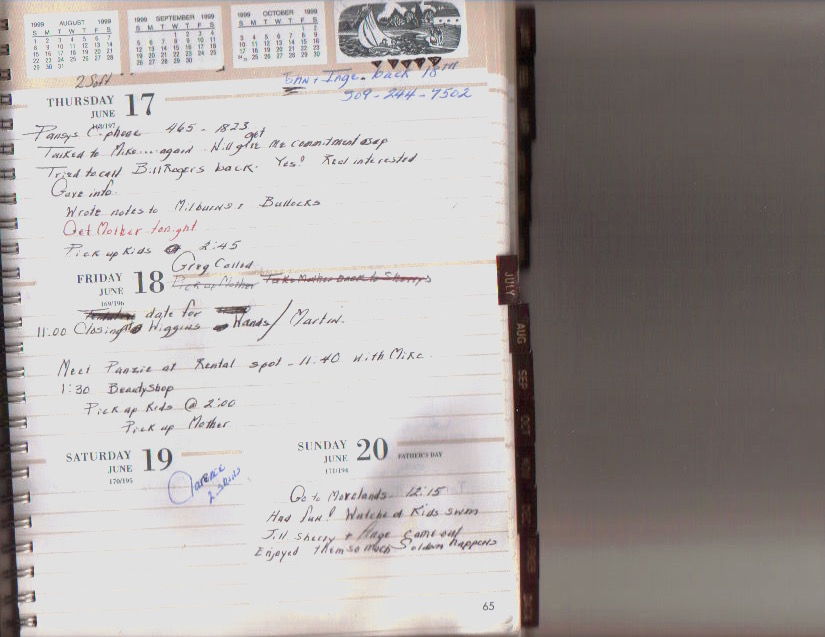 1999 AUGUST 1999
S M T W T F S
1 2 3 4 5 6 7
8 9 10 11 12 13 14
15 16 17 18 19 20 21
22 23 24 25 26 27 28
29 30 31
1999 SEPTEMBER 1999
S M T W T F S
1 2 3 4
5 6 7 8 9 10 11
12 13 14 15 16 17 18
19 20 21 22 23 24 25
26 27 28 29 30
1999 OCTOBER 1999
S M T W T F S
1 2
3 4 5 6 7 8 9
10 11 12 13 14 15 16
17 18 19 20 21 22 23
24/31 25 26 27 28 29 30
2 Sold
+ Inge. back 18TH
509-244-7502
THURSDAY 17
JUNE
168/197
Pansys C. phone 465-1823
Talked to Mike.... again. Will get me commitment asap
Tried to call Bill Rogers back. Yes! Real interested
Gave info.
Wrote notes to Milburns & Bullocks
Get Mother tonight
Pick up Kids @ 2:45
Greg Called
FRIDAY 18
JUNE
169/196
Pick up Mother Take Mother back to Sherry's
Tentative date for
11:00 Closing Wiggins Hands/Martin.
Meet Panzie at Rental spot - 11:40 with Mike.
1:30 BeautyShop
Pick up Kids @ 2:00
Pick up Mother
SATURDAY 19
JUNE
170/195
Clarence
SUNDAY 20
JUNE
171/194
FATHER'S DAY
Go to Morelands 12:15
Had fun! Watched Kids swim
Jill Sherry + came out
Enjoyed them so much Seldom happens
65
JULY
AUG
SEP
OCT
NOV
DEC